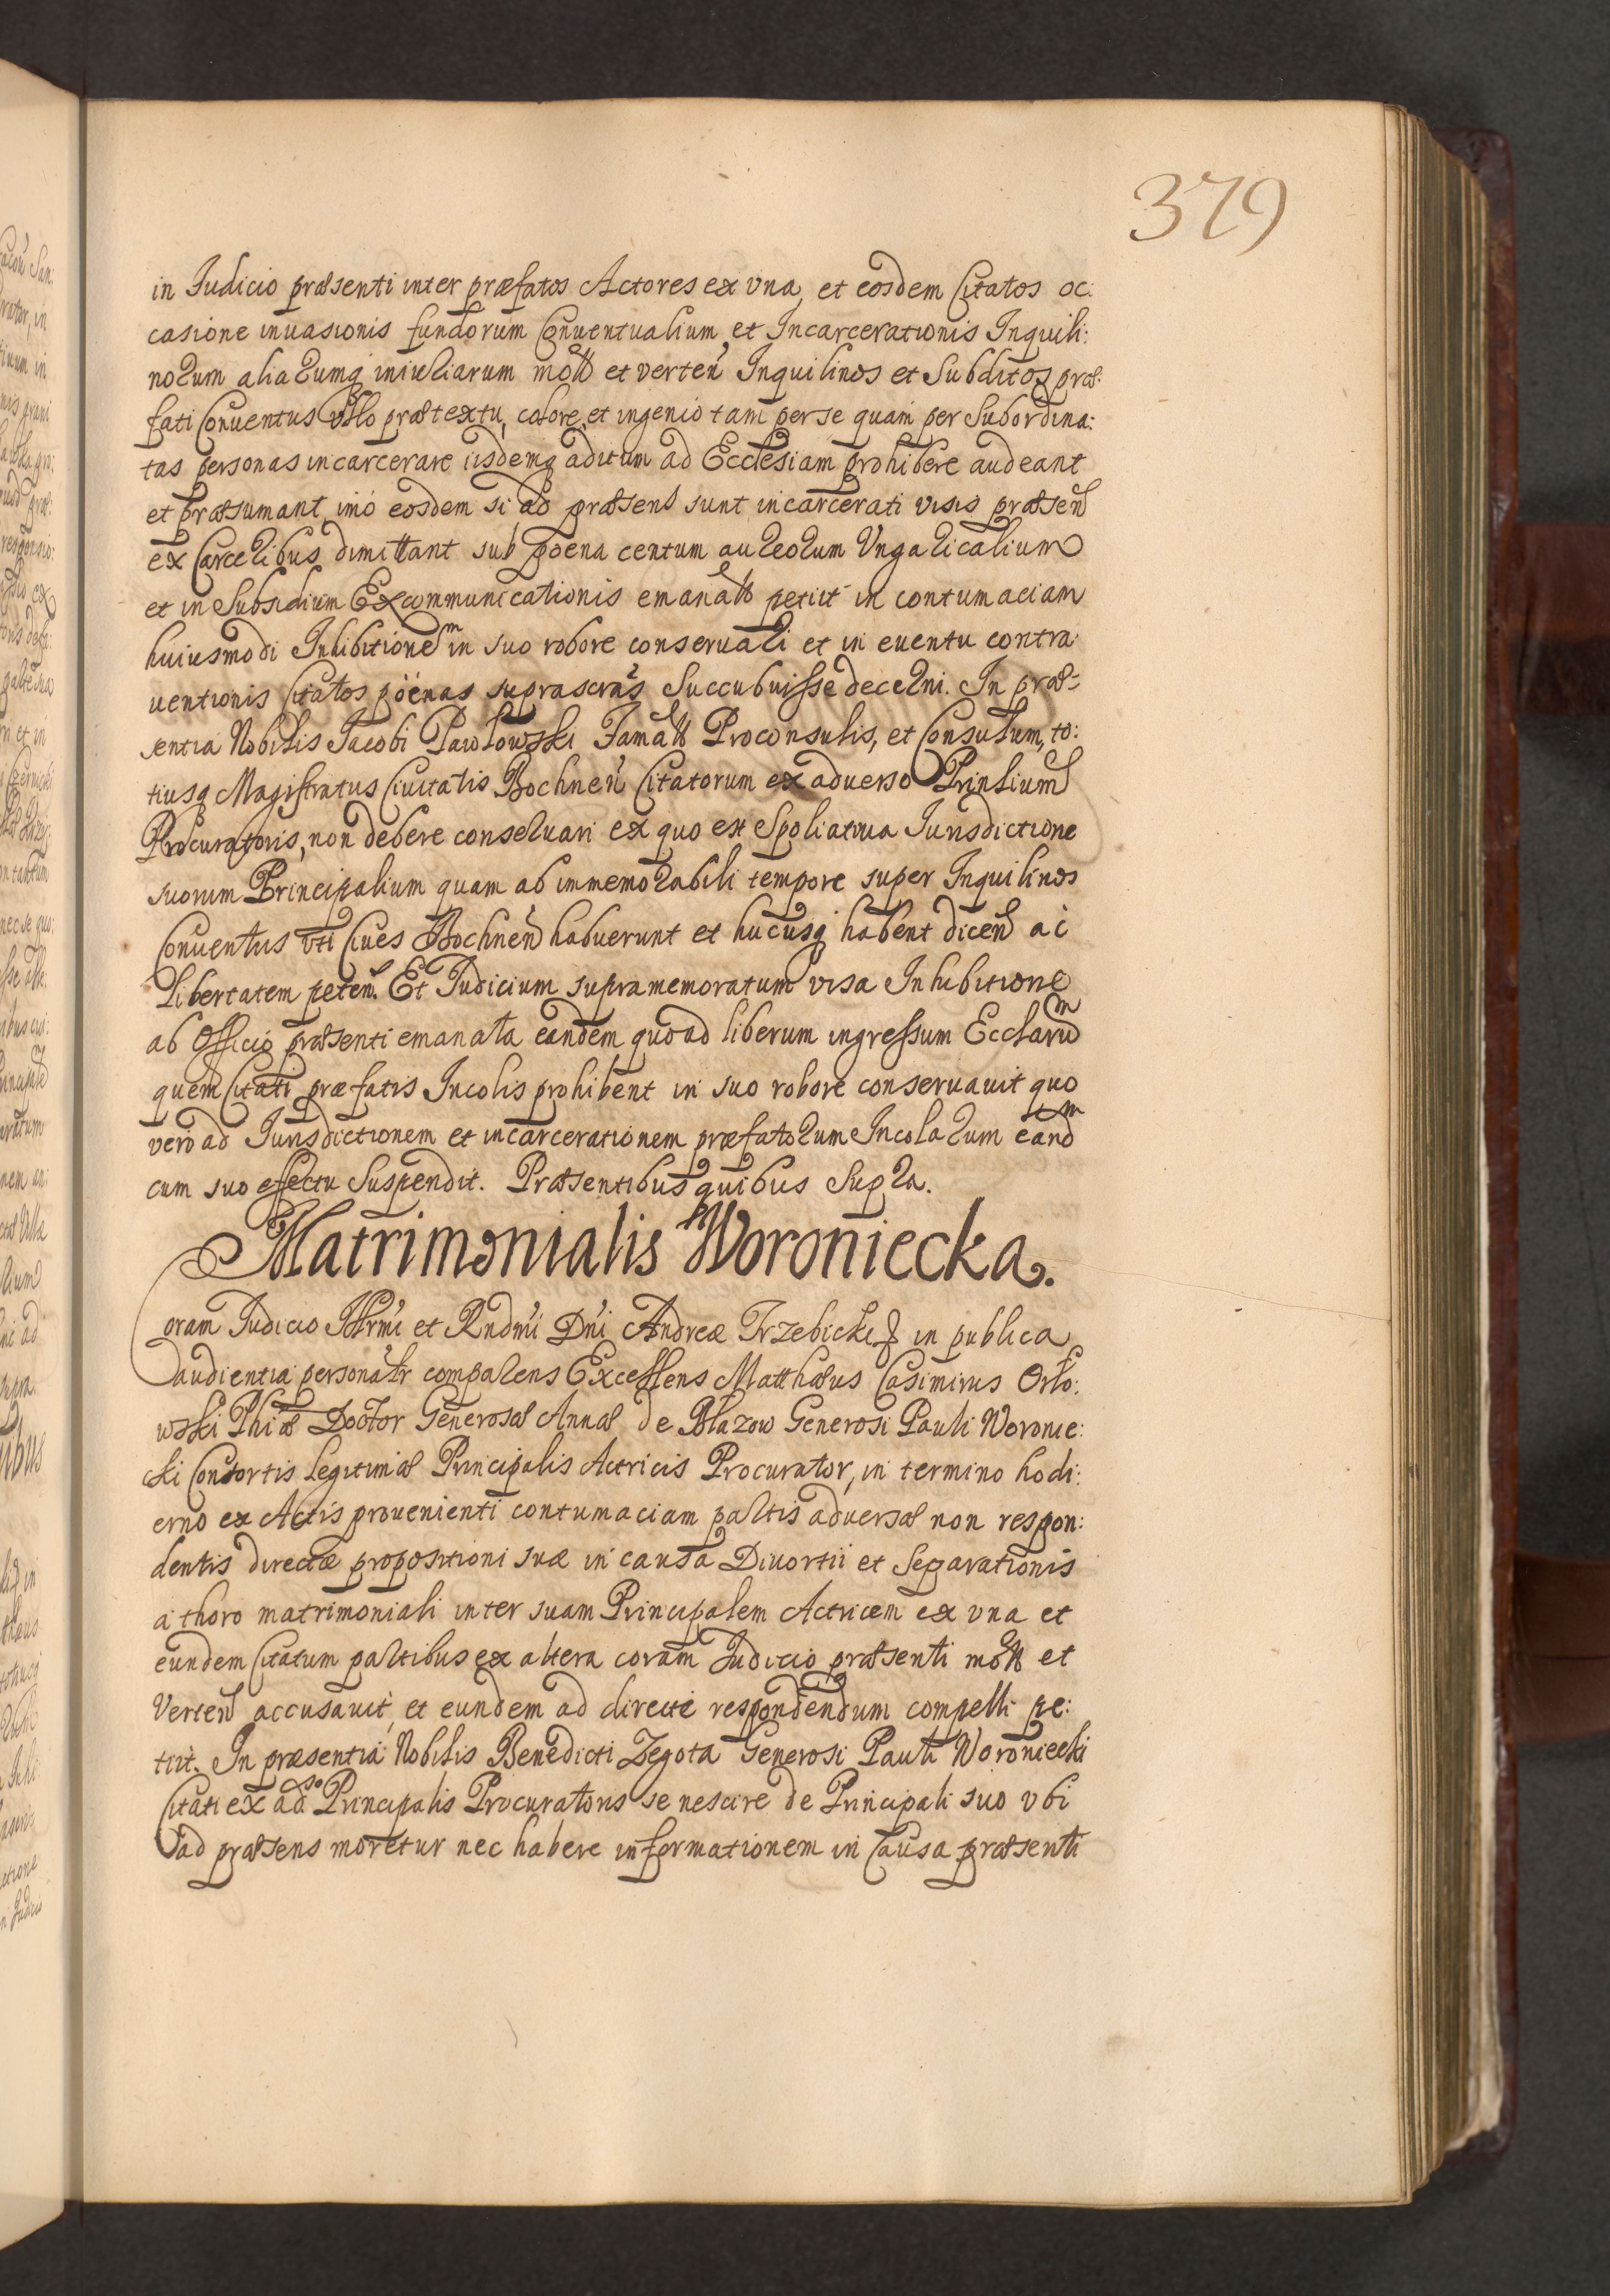 379
in Judicio præsenti inter præfatos Actores ex vna, et eosdem Citatos oc:
casione inuasionis fundorum Conuentualium, et Incarcerationis Inquili:
norum aliarumq iniuriarum mõtt et verteñ Inquilinos et Subditos præ:
fati Conuentus Vllo prætextu, colore, et ingenio tam per se quam per Subordina:
tas personas incarcerare iisdemq aditum ad Ecclesiam prohibere audeant
et præsumant, imò eosdem si ad præsens sunt incarcerati visis præseñ
ex Carceribus dimittant sub poena centum aureorum Vngaricalium
et in Subsidium Excommunicationis emanãtt petiit in contumaciam
huiusmodi Inhibitionem in suo robore conseruari et in euentu contra:
uentionis Citatos pöenas suprascrãs Succubuisse decerni. In præ:
sentia Nobilis Jacobi Pawłowski Famãtt Proconsulis, et Consulum, to:
tiusq Magistratus Ciuitatis Bochneñ Citatorum ex aduerso Prinlium
Procuratoris, non debere conseruari ex quo est Spoliatiua Iurisdictione
suorum Principalium quam ab immemorabili tempore super Inquilinos
Conuentus vti Ciues Bochneñ habuerunt et hucusq habent diceñ ac
Libertatem peteñ. Et Judicium supramemoratum visa Inhibitione
ab Officio præsenti emanata eandem quoad liberum ingressum Ecclarum
quem Citati præfatis Incolis prohibent in suo robore conseruauit quo
vero ad Iurisdictionem et incarcerationem præfatorum Incolarum eandm
cum suo effectu Suspendit. Præsentibus quibus Supra.
Matrimonialis Woroniecka.
Coram Judicio Illrmi et Rndmi Dni Andreæ Trzebicki in publica
audientia personałr comparens Excellens Matthæus Casimirus Orło:
wski Phiæ Doctor Generosæ Annæ de Błazow Generosi Pauli Woronie:
cki Consortis Legitimæ Principalis Actricis Procurator, in termino hodi:
erno ex Actis prouenienti contumaciam partis aduersæ non respon:
dentis directæ propositioni suæ in causa Diuortii et Separationis
a thoro matrimoniali inter suam Principalem Actricem ex vna et
eundem Citatum partibus ex altera coram Judicio præsenti mõtt et
Verteñ accusauit, et eundem ad directe respondendum compelli pe:
tiit. In præsentia Nobilis Benedicti Zegota Generosi Pauli Woroniecki
Citati ex adso Principalis Procuratoris se nescire de Principali suo vbi
ad præsens moretur nec habere informationem in Causa præsenti